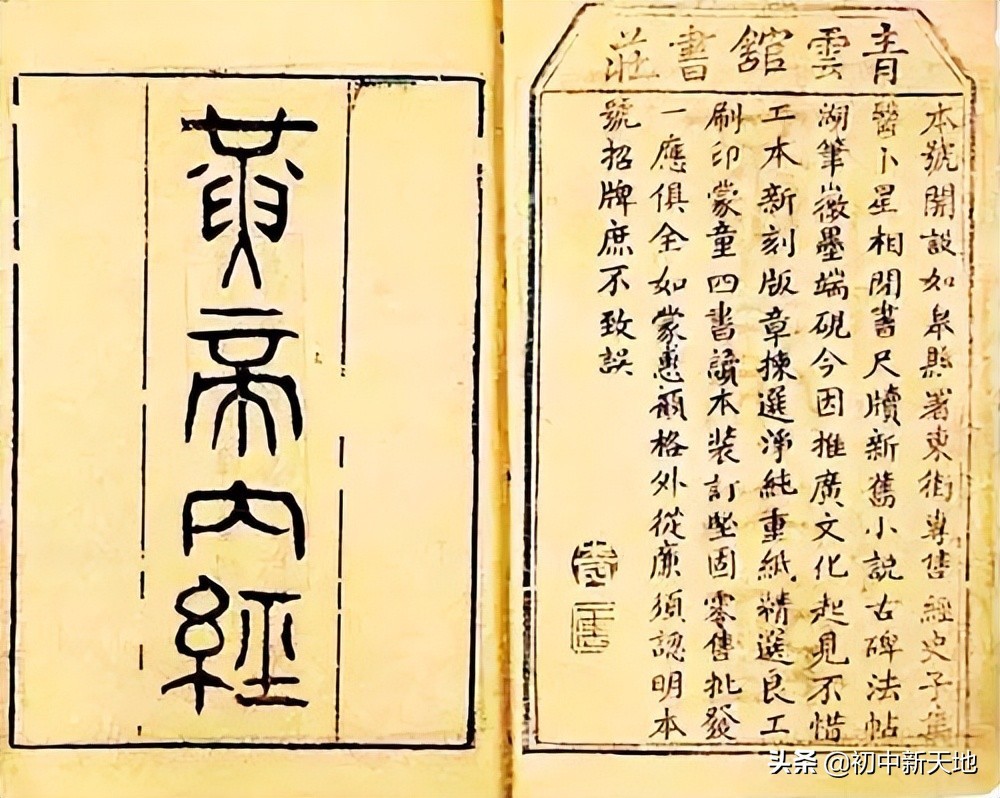 青雲舘書莊
本號開設如皋縣署東街專售經史子集
醫卜星相閒書尺牘新舊小說古碑法帖
湖筆徽墨端硯今因推廣文化起見不惜
工本新刻版章揀選淨純重紙精選良工
刷印蒙童四書讀本裝訂堅固零售批發
一應俱全如蒙惠顧格外從廉須認明本
號招牌庶不致誤
黃帝內經
头条 @初中新天地